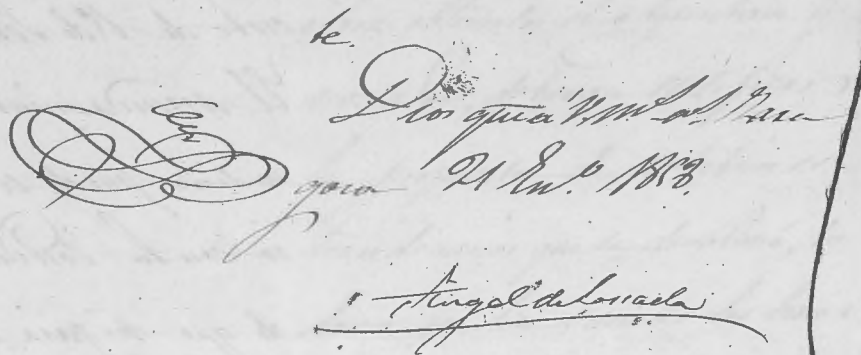 te.
Dios gue á V. m.s a.s Zara
goza 21 En.o 1853.
Angel de Losada